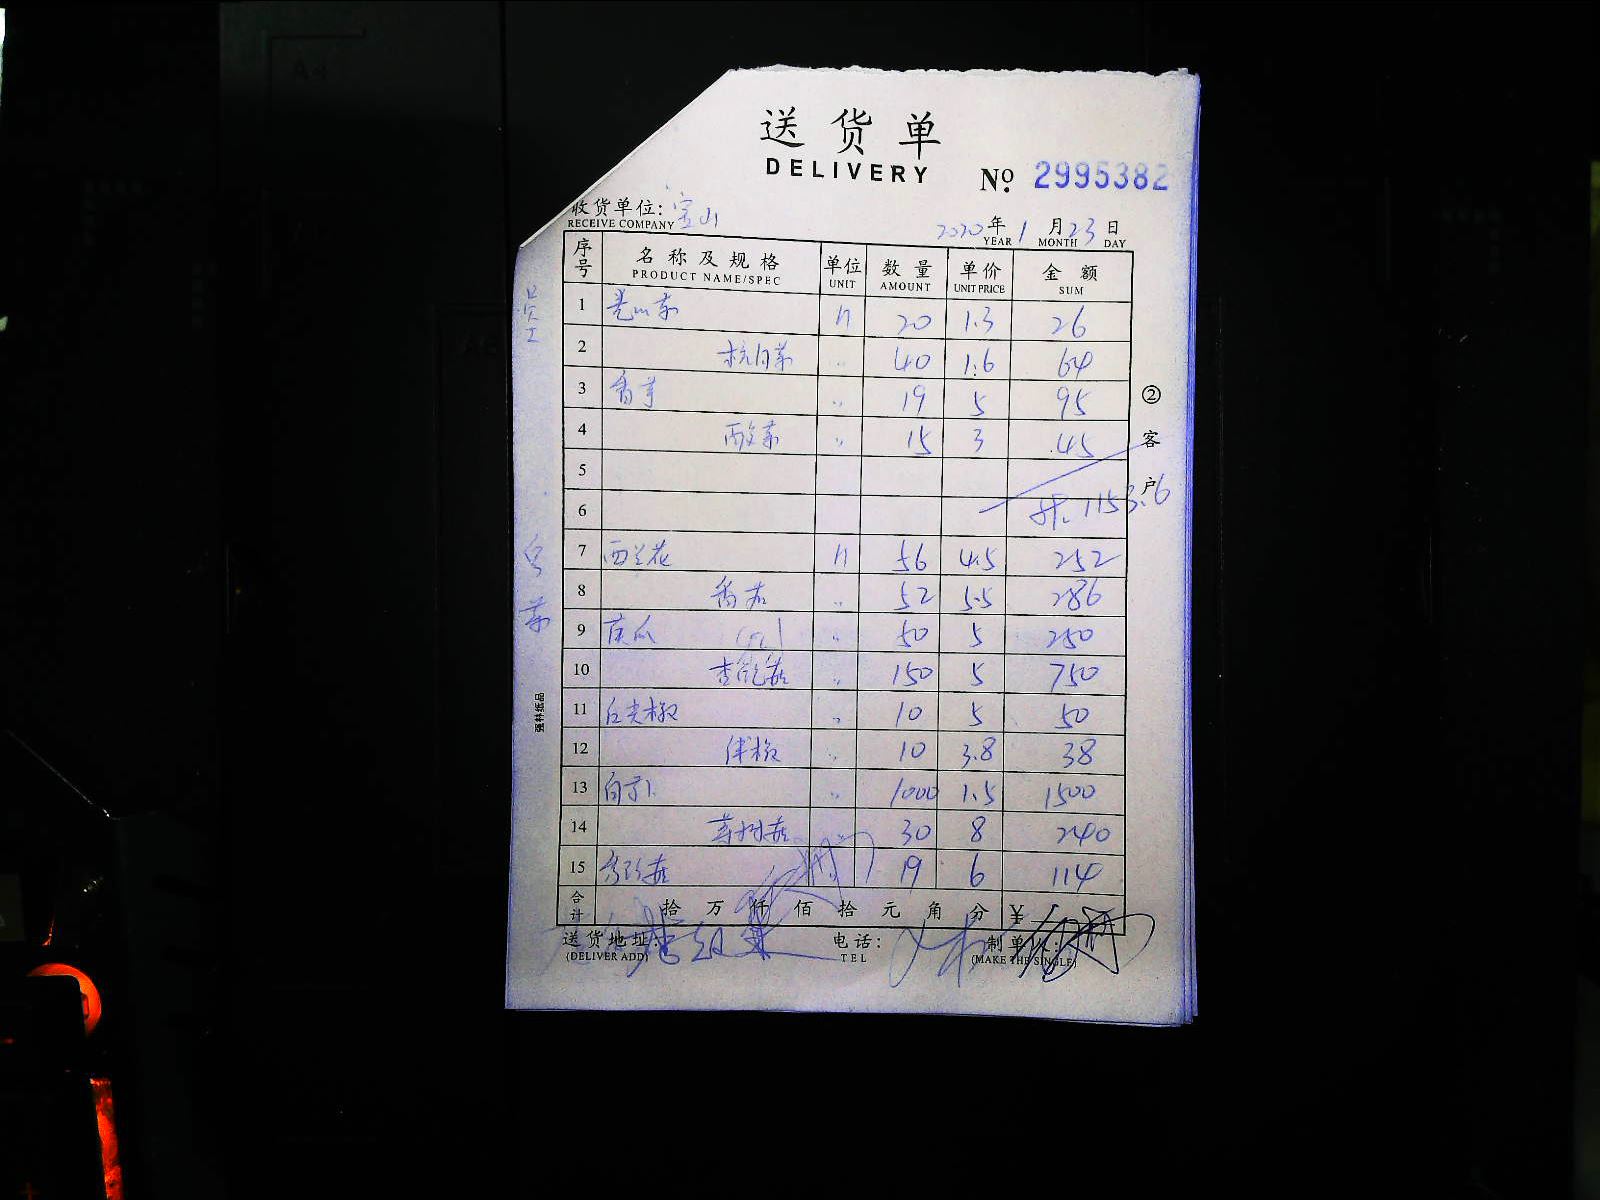 送货单
DELIVERY
№ 2995382
收货单位: 宝山
RECEIVE COMPANY
2020年 1月 23日
YEAR MONTH DAY
序号 名称及规格 单位 数量 单价 金额
PRODUCT NAME/SPEC UNIT AMOUNT UNIT PRICE SUM
1 20 1.3 26
2 杭白菜 〃 40 1.6 64
3 香芋 〃 19 5 95
4 酸菜 〃 15 3 45
5
6 1153.6
7 西兰花 斤 56 4.5 252
8 香菇 〃 52 5.5 286
9 黄瓜 〃 50 5 250
10 杏鲍菇 〃 150 5 750
11 尖椒 〃 10 5 50
12 〃 10 3.8 38
13 〃 1000 1.5 1500
14 茶树菇 30 8 240
15 秀珍菇 19 6 114
合计 拾 万 仟 佰 拾 元 角 分 ¥
送货地址: 电话: 制单人:
(DELIVER ADD) TEL (MAKE THE SINGLE)
②客户
员工
强林纸品